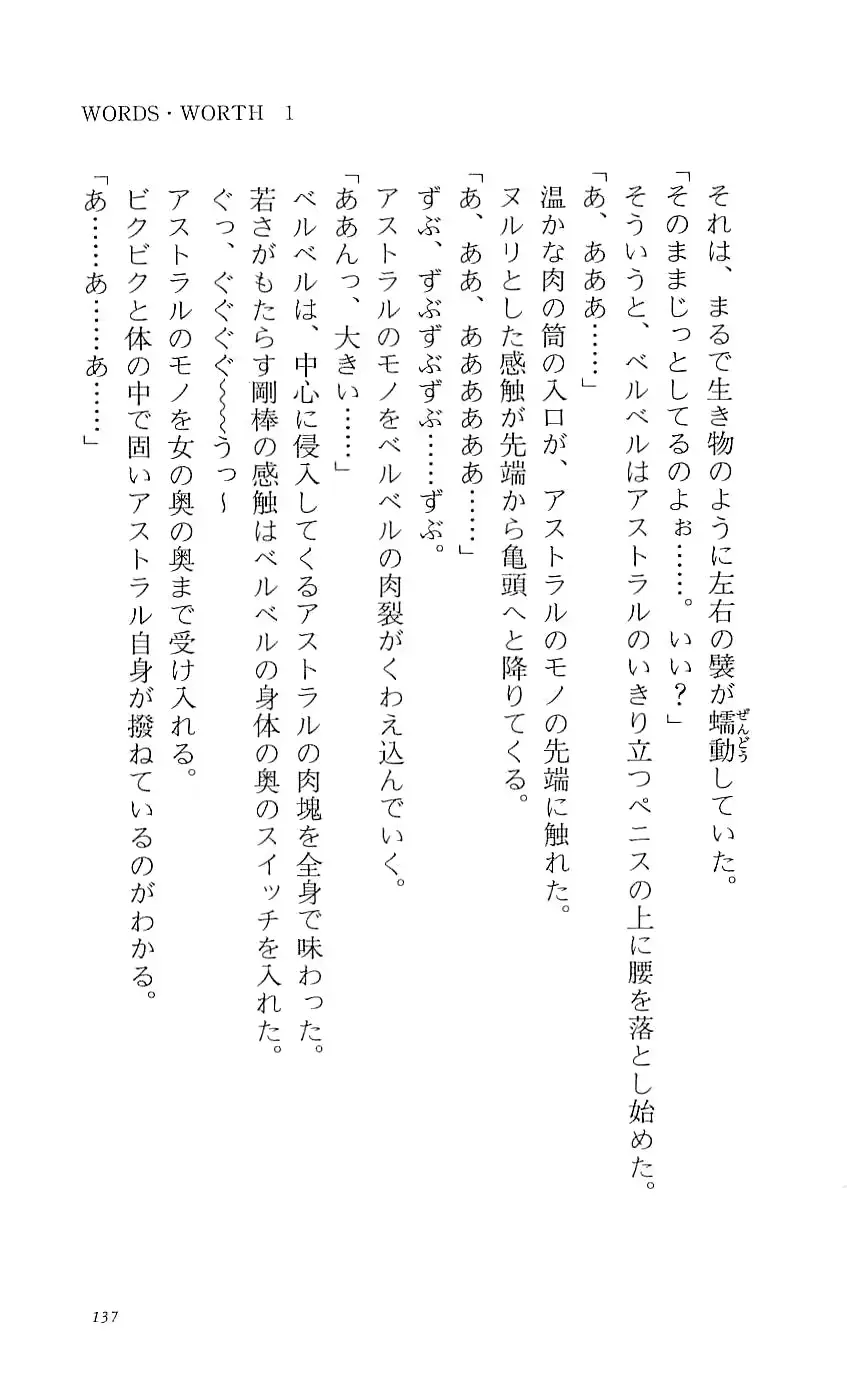 WORDS・WORTH 1
それは、まるで生き物のように左右の襞が蠕動していた。
「そのままじっとしてるのよぉ……。いい？」
そういうと、ベルベルはアストラルのいきり立つペニスの上に腰を落とし始めた。
「あ、ああぁ……」
温かな肉の筒の入口が、アストラルのモノの先端に触れた。
ヌルリとした感触が先端から亀頭へと降りてくる。
「あ、ああ、ああああああ……」
ずぶ、ずぶずぶずぶ……ずぶ。
アストラルのモノをベルベルの肉裂がくわえ込んでいく。
「ああんっ、大きい……」
ベルベルは、中心に侵入してくるアストラルの肉塊を全身で味わった。
若さがもたらす剛棒の感触はベルベルの身体の奥のスイッチを入れた。
ぐっ、ぐぐぐぐ～～～うっ～
アストラルのモノを女の奥の奥まで受け入れる。
ビクビクと体の中で固いアストラル自身が撥ねているのがわかる。
「あ……あ……あ……」
137